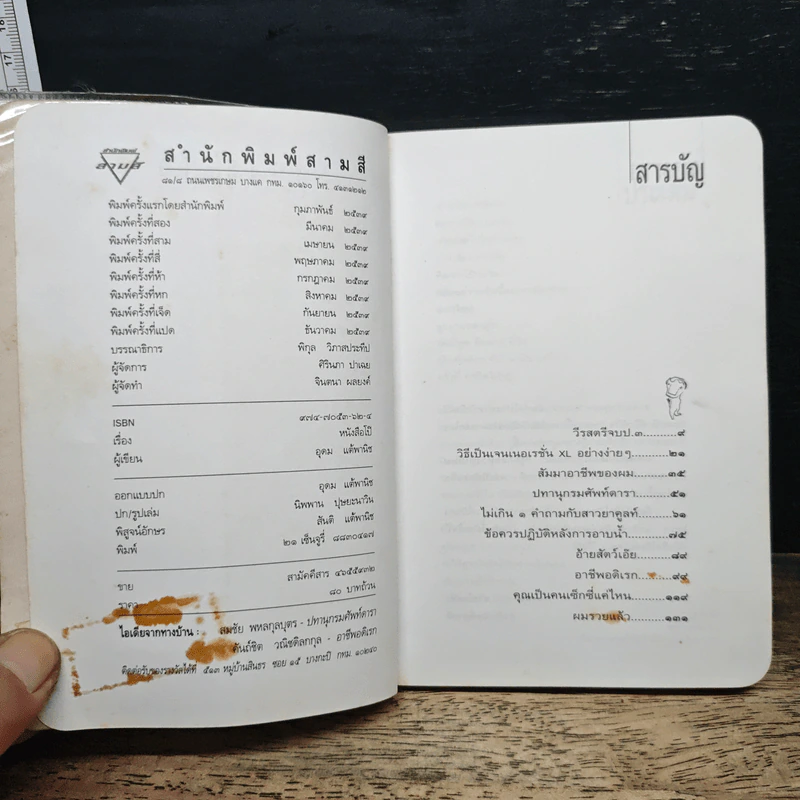 สำนักพิมพ์
สามสี
สำนักพิมพ์สามสี
๘๑/๘ ถนนเพชรเกษม บางแค กทม. ๑๐๑๖๐ โทร. ๔๑๓๑๒๑๒
พิมพ์ครั้งแรกโดยสำนักพิมพ์ กุมภาพันธ์ ๒๕๓๙
พิมพ์ครั้งที่สอง มีนาคม ๒๕๓๙
พิมพ์ครั้งที่สาม เมษายน ๒๕๓๙
พิมพ์ครั้งที่สี่ พฤษภาคม ๒๕๓๙
พิมพ์ครั้งที่ห้า กรกฎาคม ๒๕๓๙
พิมพ์ครั้งที่หก สิงหาคม ๒๕๓๙
พิมพ์ครั้งที่เจ็ด กันยายน ๒๕๓๙
พิมพ์ครั้งที่แปด ธันวาคม ๒๕๓๙
บรรณาธิการ พิกุล วิภาสประทีป
ผู้จัดการ ศิรินภา ปาเฉย
ผู้จัดทำ จินตนา ผลยงค์
ISBN ๙๗๔-๗๐๕๓-๖๒-๔
เรื่อง หนังสือโป๊
ผู้เขียน อุดม แต้พานิช
ออกแบบปก อุดม แต้พานิช
ปก/รูปเล่ม นิพพาน ปุษยะนาวิน
พิสูจน์อักษร สันติ แต้พานิช
พิมพ์ ๒๑ เซ็นจูรี่ ๘๘๓๐๔๑๗
ขาย สามัคคีสาร ๔๖๕๕๙๓๒
ราคา ๘๐ บาทถ้วน
ไอเดียจากทางบ้าน : สมชัย พหลกุลบุตร - ปทานุกรมศัพท์ดารา
คันถ์ชิต วณิชดิลกกุล - อาชีพอดิเรก
ติดต่อรับของรางวัลได้ที่ ๕๑๓ หมู่บ้านสินธร ซอย ๑๕ บางกะปิ กทม. ๑๐๒๔๐
สารบัญ
วีรสตรีจบป.๓..........๙
วิธีเป็นเจนเนอเรชั่น XL อย่างง่ายๆ..........๒๑
สัมมาอาชีพของผม..........๓๕
ปทานุกรมศัพท์ดารา..........๕๑
ไม่เกิน ๑ คำถามกับสาวยาคูลท์..........๖๑
ข้อควรปฏิบัติหลังการอาบน้ำ..........๗๕
อ้ายสัตว์เอ๊ย..........๘๙
อาชีพอดิเรก..........๙๙
คุณเป็นคนเซ็กซี่แค่ไหน..........๑๑๙
ผมรวยแล้ว..........๑๓๑
16
17